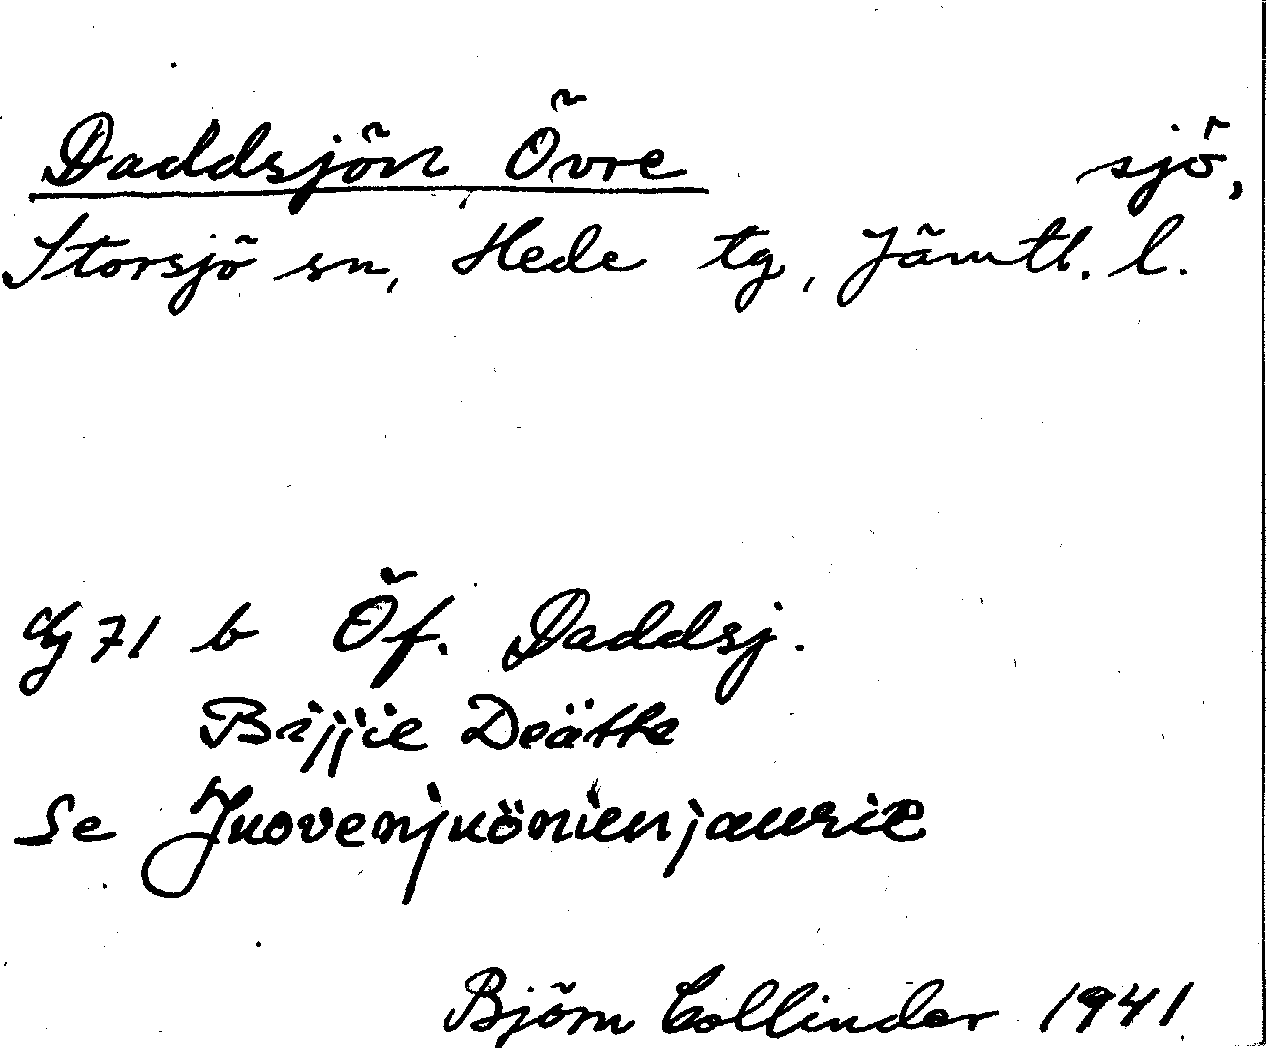 Daddsjön, Övre sjö,
Storsjö sn, Hede tg, Jämtl. l.
Gg 71 b Öf. Daddsj.
Bijjie Deätte
Se Juovenjuönienjaurie
Björn Collinder 1941